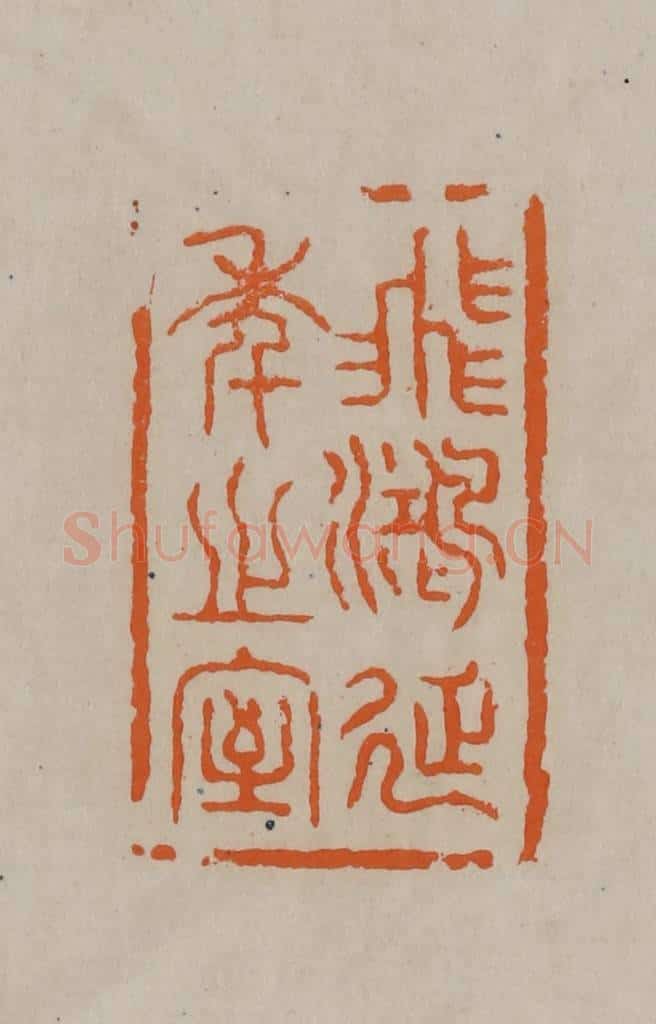 飛鴻延
年之室
Shufawang.CN